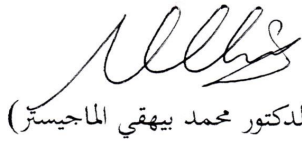 لدكتور محمد بيهقي الماجيستر)